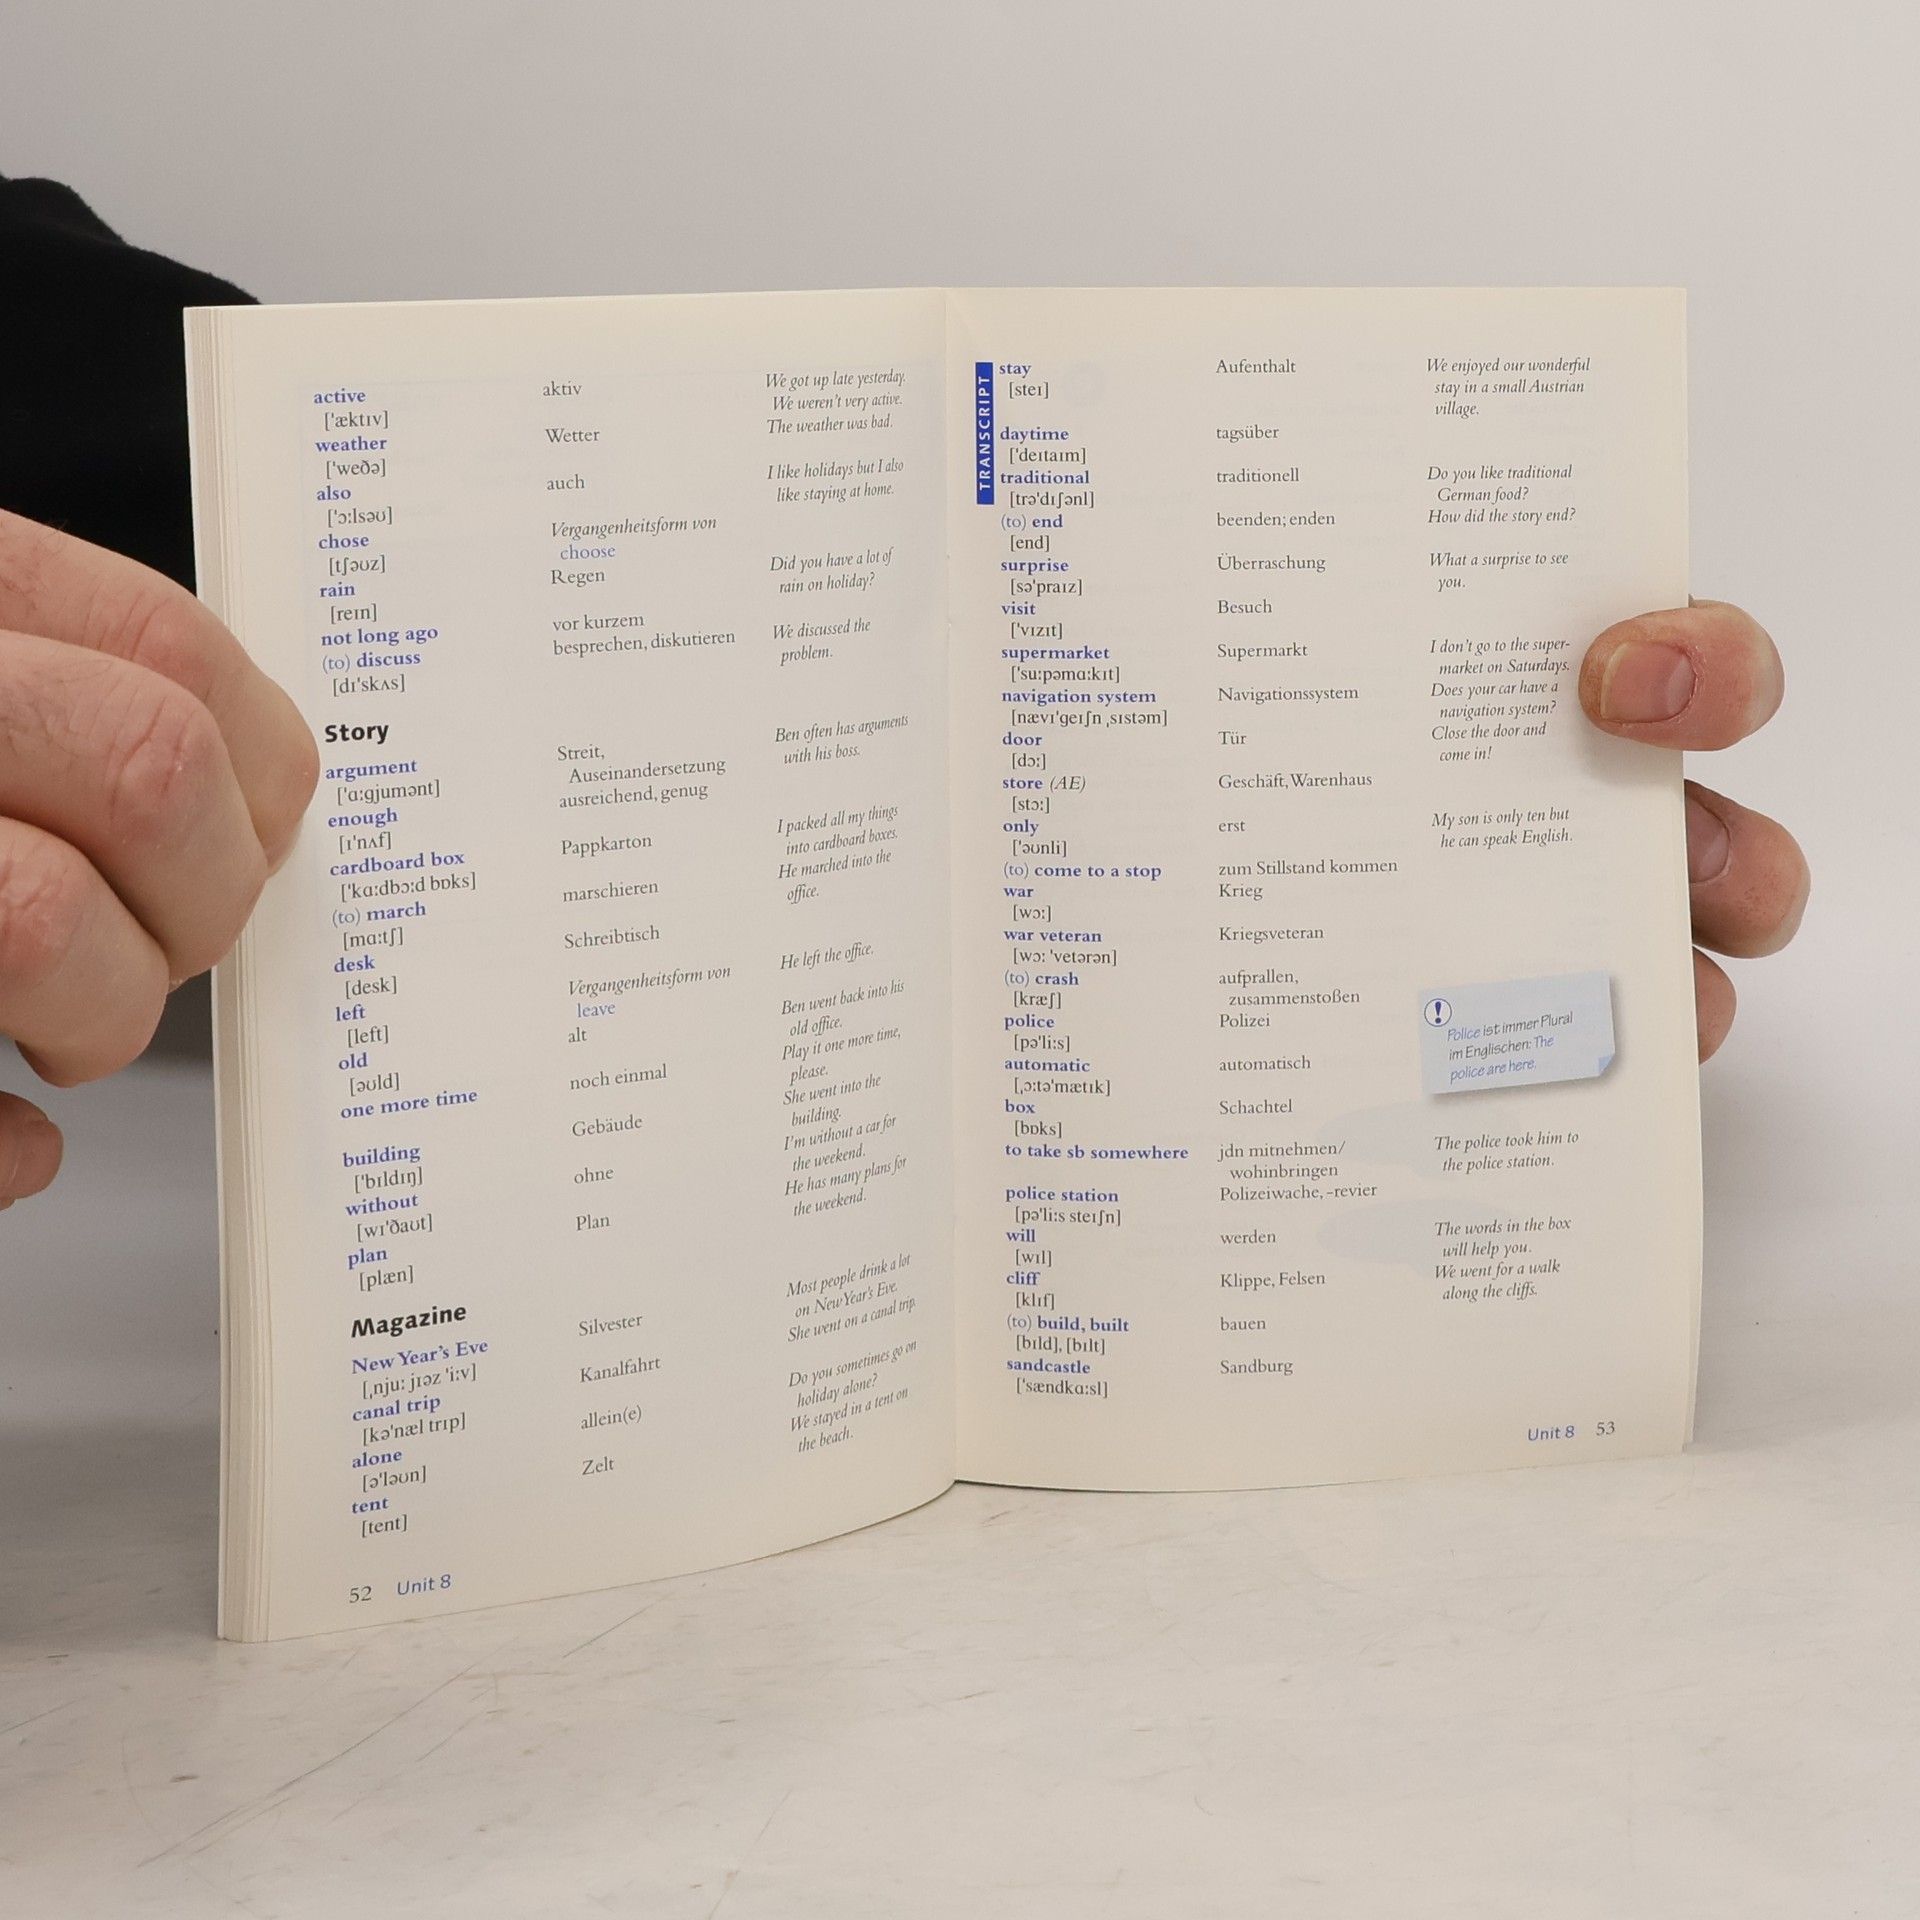 active aktiv We got up late yesterday.
['æktɪv] We weren't very active.
weather Wetter The weather was bad.
['weðə]
also auch I like holidays but I also
['ɔːlsəʊ] like staying at home.
chose Vergangenheitsform von
[tʃəʊz] choose
rain Regen Did you have a lot of
[reɪn] rain on holiday?
not long ago vor kurzem
(to) discuss besprechen, diskutieren We discussed the
[dɪ'skʌs] problem.
Story
argument Streit, Ben often has arguments
['ɑːgjumənt] Auseinandersetzung with his boss.
enough ausreichend, genug
[ɪ'nʌf]
cardboard box Pappkarton I packed all my things
['kɑːdbɔːd bɒks] into cardboard boxes.
(to) march marschieren He marched into the
[mɑːtʃ] office.
desk Schreibtisch
[desk]
left Vergangenheitsform von He left the office.
[left] leave
old alt Ben went back into his
[əʊld] old office.
one more time noch einmal Play it one more time,
please.
building Gebäude She went into the
['bɪldɪŋ] building.
without ohne I'm without a car for
[wɪ'ðaʊt] the weekend.
plan Plan He has many plans for
[plæn] the weekend.
Magazine
New Year's Eve Silvester Most people drink a lot
[ˌnjuː jɪəz 'iːv] on New Year's Eve.
canal trip Kanalfahrt She went on a canal trip.
[kə'næl trɪp]
alone allein(e) Do you sometimes go on
[ə'ləʊn] holiday alone?
tent Zelt We stayed in a tent on
[tent] the beach.
52 Unit 8
TRANSCRIPT
stay Aufenthalt We enjoyed our wonderful
[steɪ] stay in a small Austrian
village.
daytime tagsüber
['deɪtaɪm]
traditional traditionell Do you like traditional
[trə'dɪʃənl] German food?
(to) end beenden; enden How did the story end?
[end]
surprise Überraschung What a surprise to see
[sə'praɪz] you.
visit Besuch
['vɪzɪt]
supermarket Supermarkt I don't go to the super-
['suːpəmɑːkɪt] market on Saturdays.
navigation system Navigationssystem Does your car have a
[nævɪ'geɪʃn ˌsɪstəm] navigation system?
door Tür Close the door and
[dɔː] come in!
store (AE) Geschäft, Warenhaus
[stɔː]
only erst My son is only ten but
['əʊnli] he can speak English.
(to) come to a stop zum Stillstand kommen
war Krieg
[wɔː]
war veteran Kriegsveteran
[wɔː 'vetərən]
(to) crash aufprallen,
[kræʃ] zusammenstoßen
police Polizei
[pə'liːs]
! Police ist immer Plural
im Englischen: The
police are here.
automatic automatisch
[ˌɔːtə'mætɪk]
box Schachtel
[bɒks]
to take sb somewhere jdn mitnehmen/ The police took him to
wohinbringen the police station.
police station Polizeiwache, -revier
[pə'liːs steɪʃn]
will werden The words in the box
[wɪl] will help you.
cliff Klippe, Felsen We went for a walk
[klɪf] along the cliffs.
(to) build, built bauen
[bɪld], [bɪlt]
sandcastle Sandburg
['sændkɑːsl]
Unit 8 53